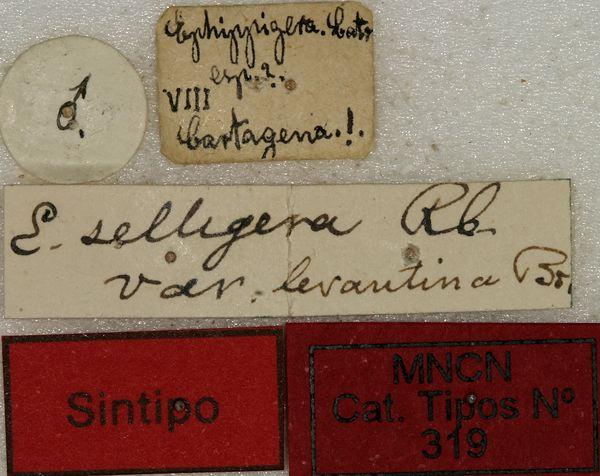 ♂.
Ephippigera. Latr
esp.?.
VIII
Cartagena.!.
E. selligera Rb.
var. levantina Bo.
Sintipo
MNCN
Cat. Tipos Nº
319